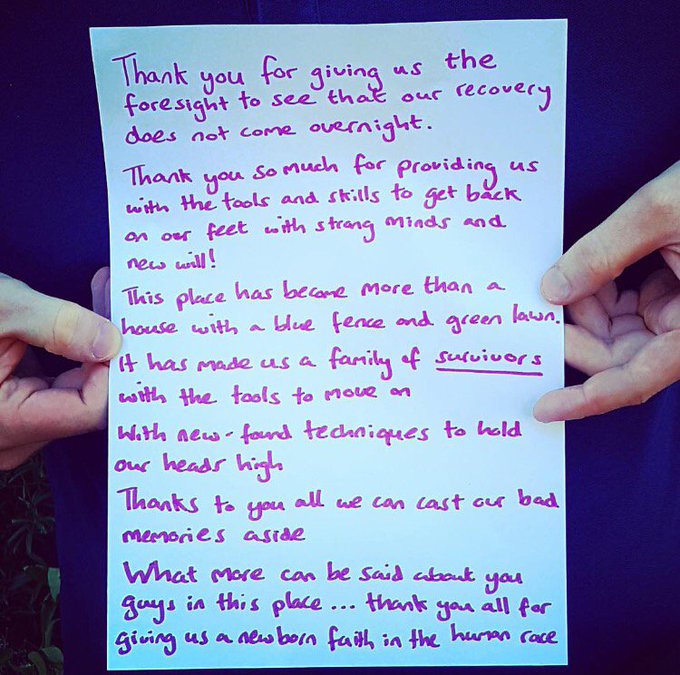 Thank you for giving us the
foresight to see that our recovery
does not come overnight.
Thank you so much for providing us
with the tools and skills to get back
on our feet with strong minds and
new will!
This place has become more than a
house with a blue fence and green lawn.
It has made us a family of survivors
with the tools to move on
With new-found techniques to hold
our heads high
Thanks to you all we can cast our bad
memories aside
What more can be said about you
guys in this place... thank you all for
giving us a newborn faith in the human race